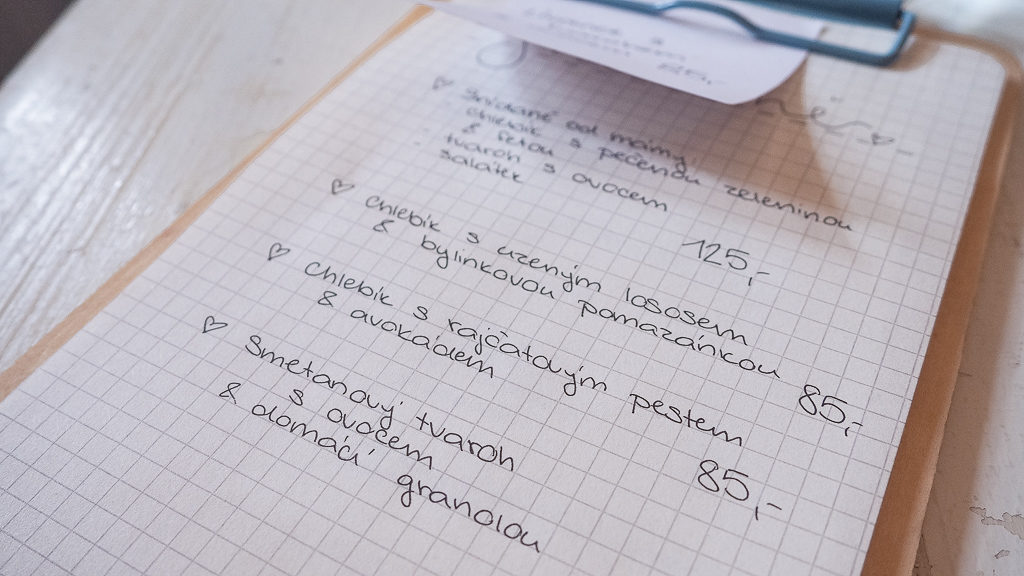 85,-
Snídaně od mámy
chlebík s pečenou zeleninou
& fetou
tvaroh s ovocem
salátek
125,-
Chlebík s uzeným lososem
& bylinkovou pomazánkou 85,-
Chlebík s rajčatovým pestem
& avokádem
85,-
Smetanový tvaroh
s ovocem
& domácí granolou